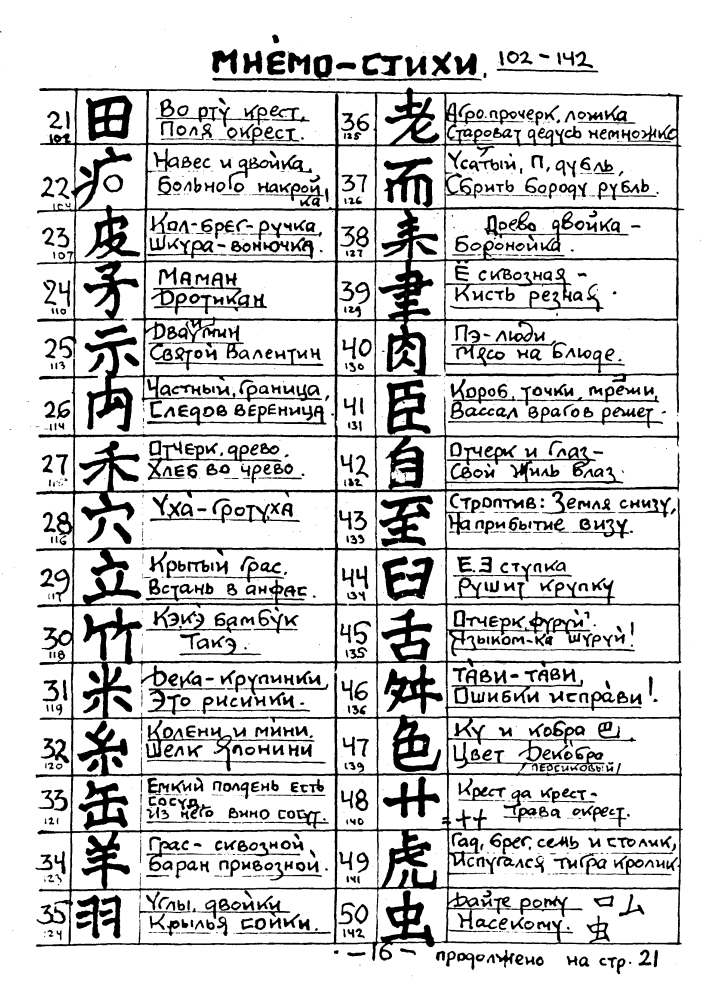 МНЕМО-СТИХИ. 102-142
21 102 田 Во рту крест,
Поля окрест.
22 104 疒 Навес и двойка,
Больного накрой-
ка
23 107 皮 Кол-брег-ручка,
Шкура-вонючка.
24 110 矛 Маман
Дротикан
25 113 示 Два мин
Святой Валентин
26 114 禸 Частный, граница,
Следов вереница.
27 115 禾 Отчерк, древо.
Хлеб во чрево.
28 116 穴 Уха-гротуха
29 117 立 Крытый грас,
Встань в анфас.
30 118 竹 Кэкэ бамбук
Такэ.
31 119 米 Дека-крупинки,
Это рисинки.
32 120 糸 Колени и мини.
Шёлк Японини
33 121 缶 Емкий полдень есть
сосуд,
Из него вино сосут.
34 123 羊 Грас- сквозной
Баран привозной.
35 124 羽 Углы, двойки
Крылья сойки.
36 125 老 Агро.прочерк, ложка
Староват дедусь немножко
37 126 而 Усатый, П, дубль,
Сбрить бороду рубль.
38 127 耒 Древо двойка-
Боронойка.
39 129 聿 Ё сквозная -
Кисть резная.
40 130 肉 Пэ-люди,
Мясо на блюде.
41 131 臣 Короб, точки,
Вассал врагов решет.
42 132 自 Отчерк и глаз-
Свой влаз.
43 133 至 Строптив: Земля снизу,
На прибытие визу.
44 134 臼 Е.Э ступка
Рушит крупку
45 135 舌 Отчерк,
Языком-ка шуруй!
46 136 舛 Тави-тави,
Ошибки исправи!
47 139 色 Ку и кобра 巴
Цвет Декобра
/персиковый/
48 140 艹 Крест да крест-
=++ Трава окрест.
49 141 虎 Гад, брег, семь и столик,
Испугался тигра кролик.
50 142 虫 Дайте рому 口 厶
Насекому. 虫
-16- продолжено на стр. 21